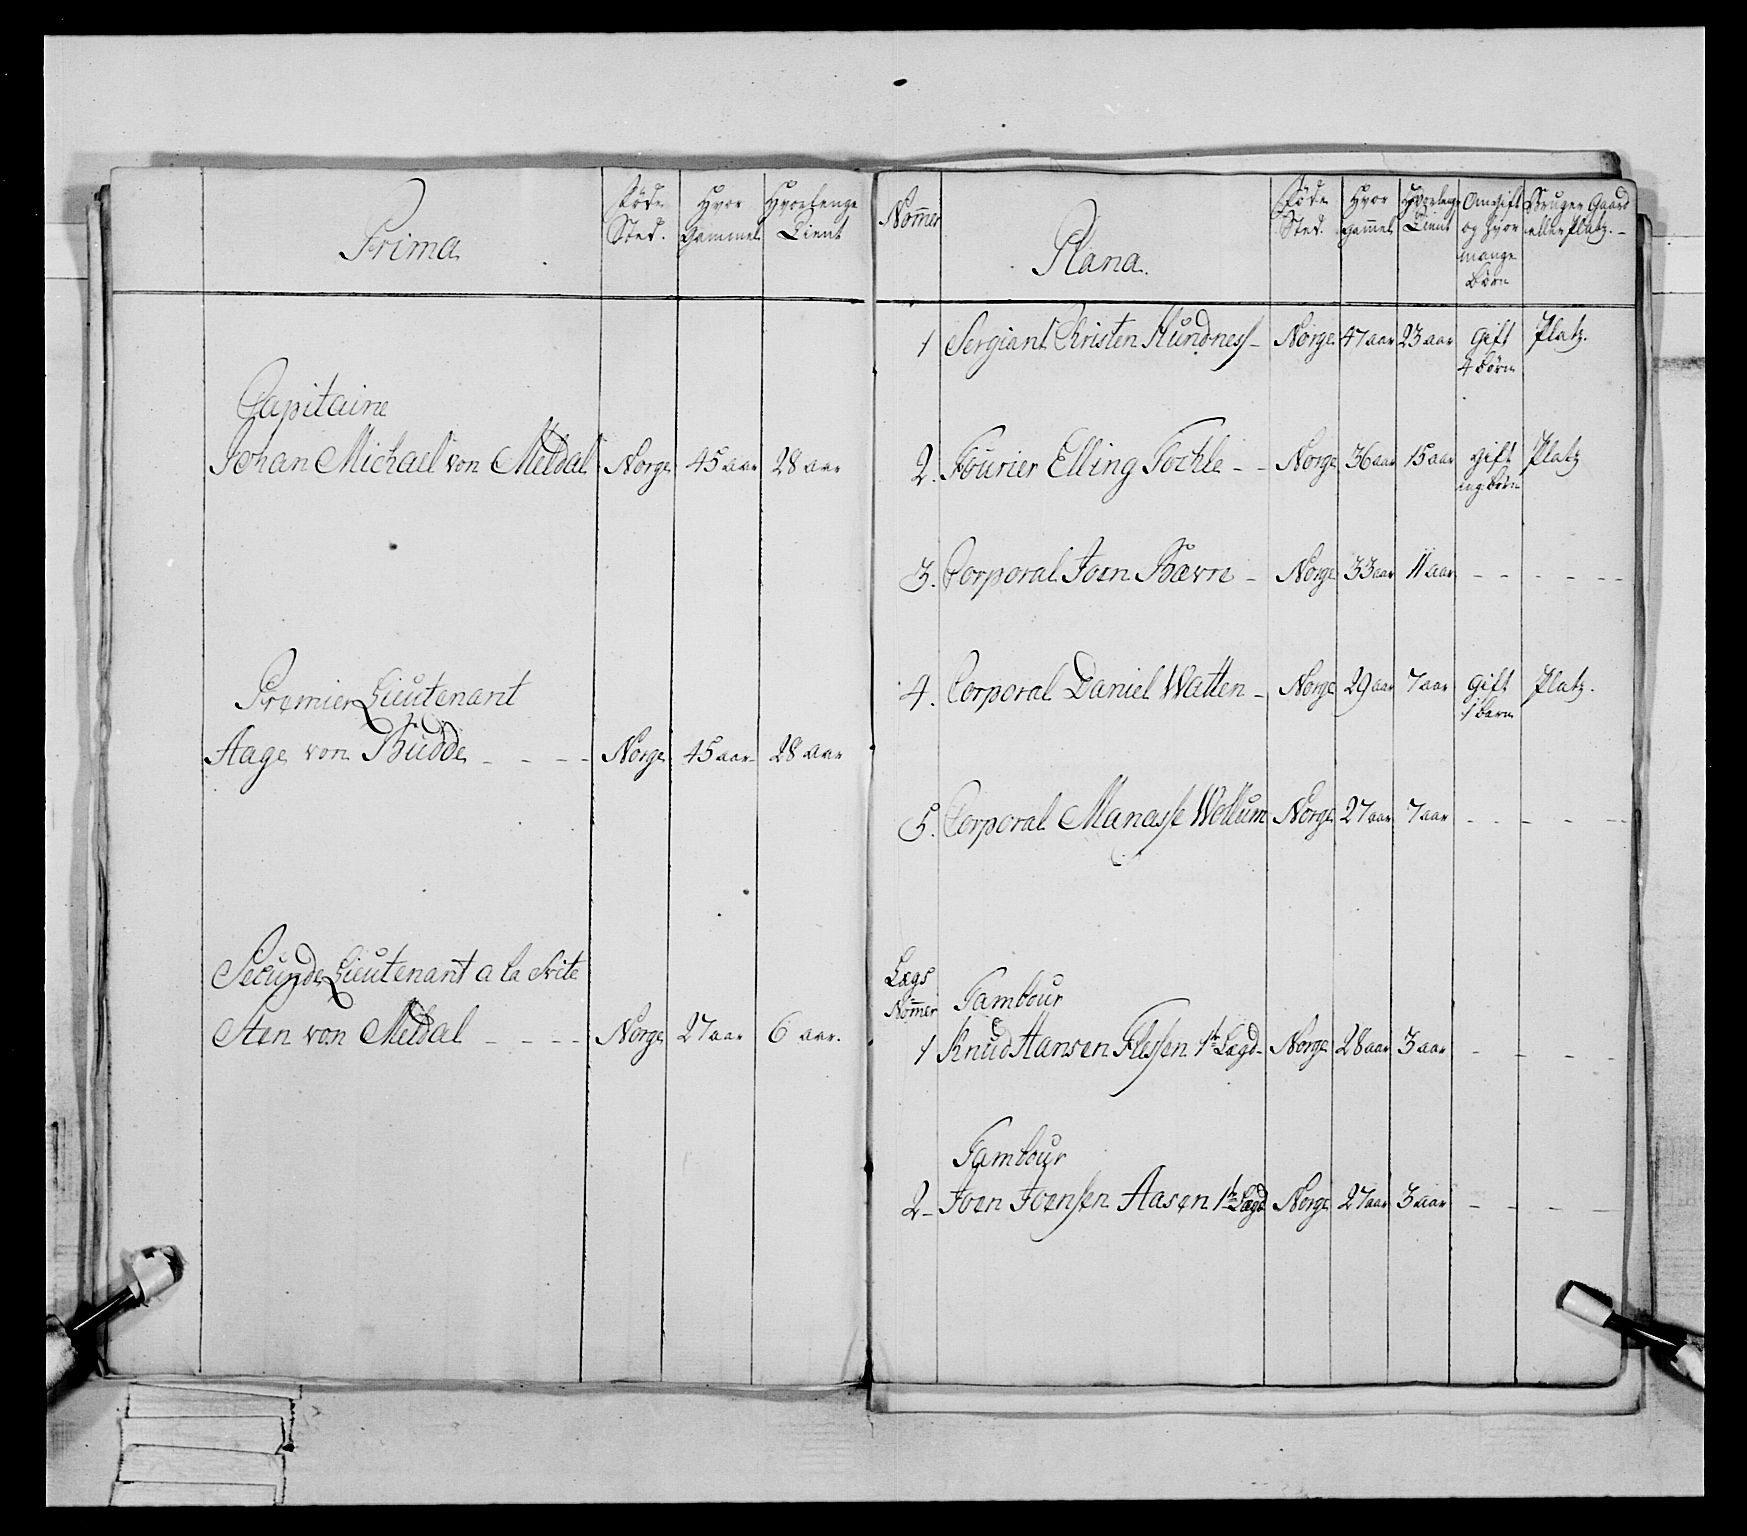 Prima
Føde Sted.
Hvor Gammel
Hvorlenge Tient
Capitaine
Johan Michael von Meldal Norge 45 aar 28 aar
Premier Lieutenant
Aage von Büdde - - - - Norge 45 aar 28 aar
Secunde Lieutenant a la Svite
Sten von Meldal - - - - Norge 27 aar 6 aar.
Nom̄er
Plana.
Føde Sted.
Hvor Gam̄el
Hvorleng Tient
Om gift og hvor mange børn
Bruger Gaard eller Platz. -
1 Sergiant Christen Hundness - Norge 47 aar 23 aar gift Platz.
4 børn
2. Fourier Elling Tochle - - Norge 36 aar 15 aar gift Platz
ing. børn
3. Corporal Joen Bævre - Norge 33 aar 11 aar - - - - - -
4. Corporal Daniel Watten - Norge 29 aar 7 aar gift Platz.
1 barn
5. Corporal Manasse Wollum Norge 27 aar 7 aar - - - - -
Lægs
Nom̄er Tambour
1 Knud Hansen Flessen 1te Lægd - Norge 28 aar 3 aar - - - -
Tambour
2 - Joen Joensen Aasen 1te Lægd Norge 27 aar 3 aar - - - -